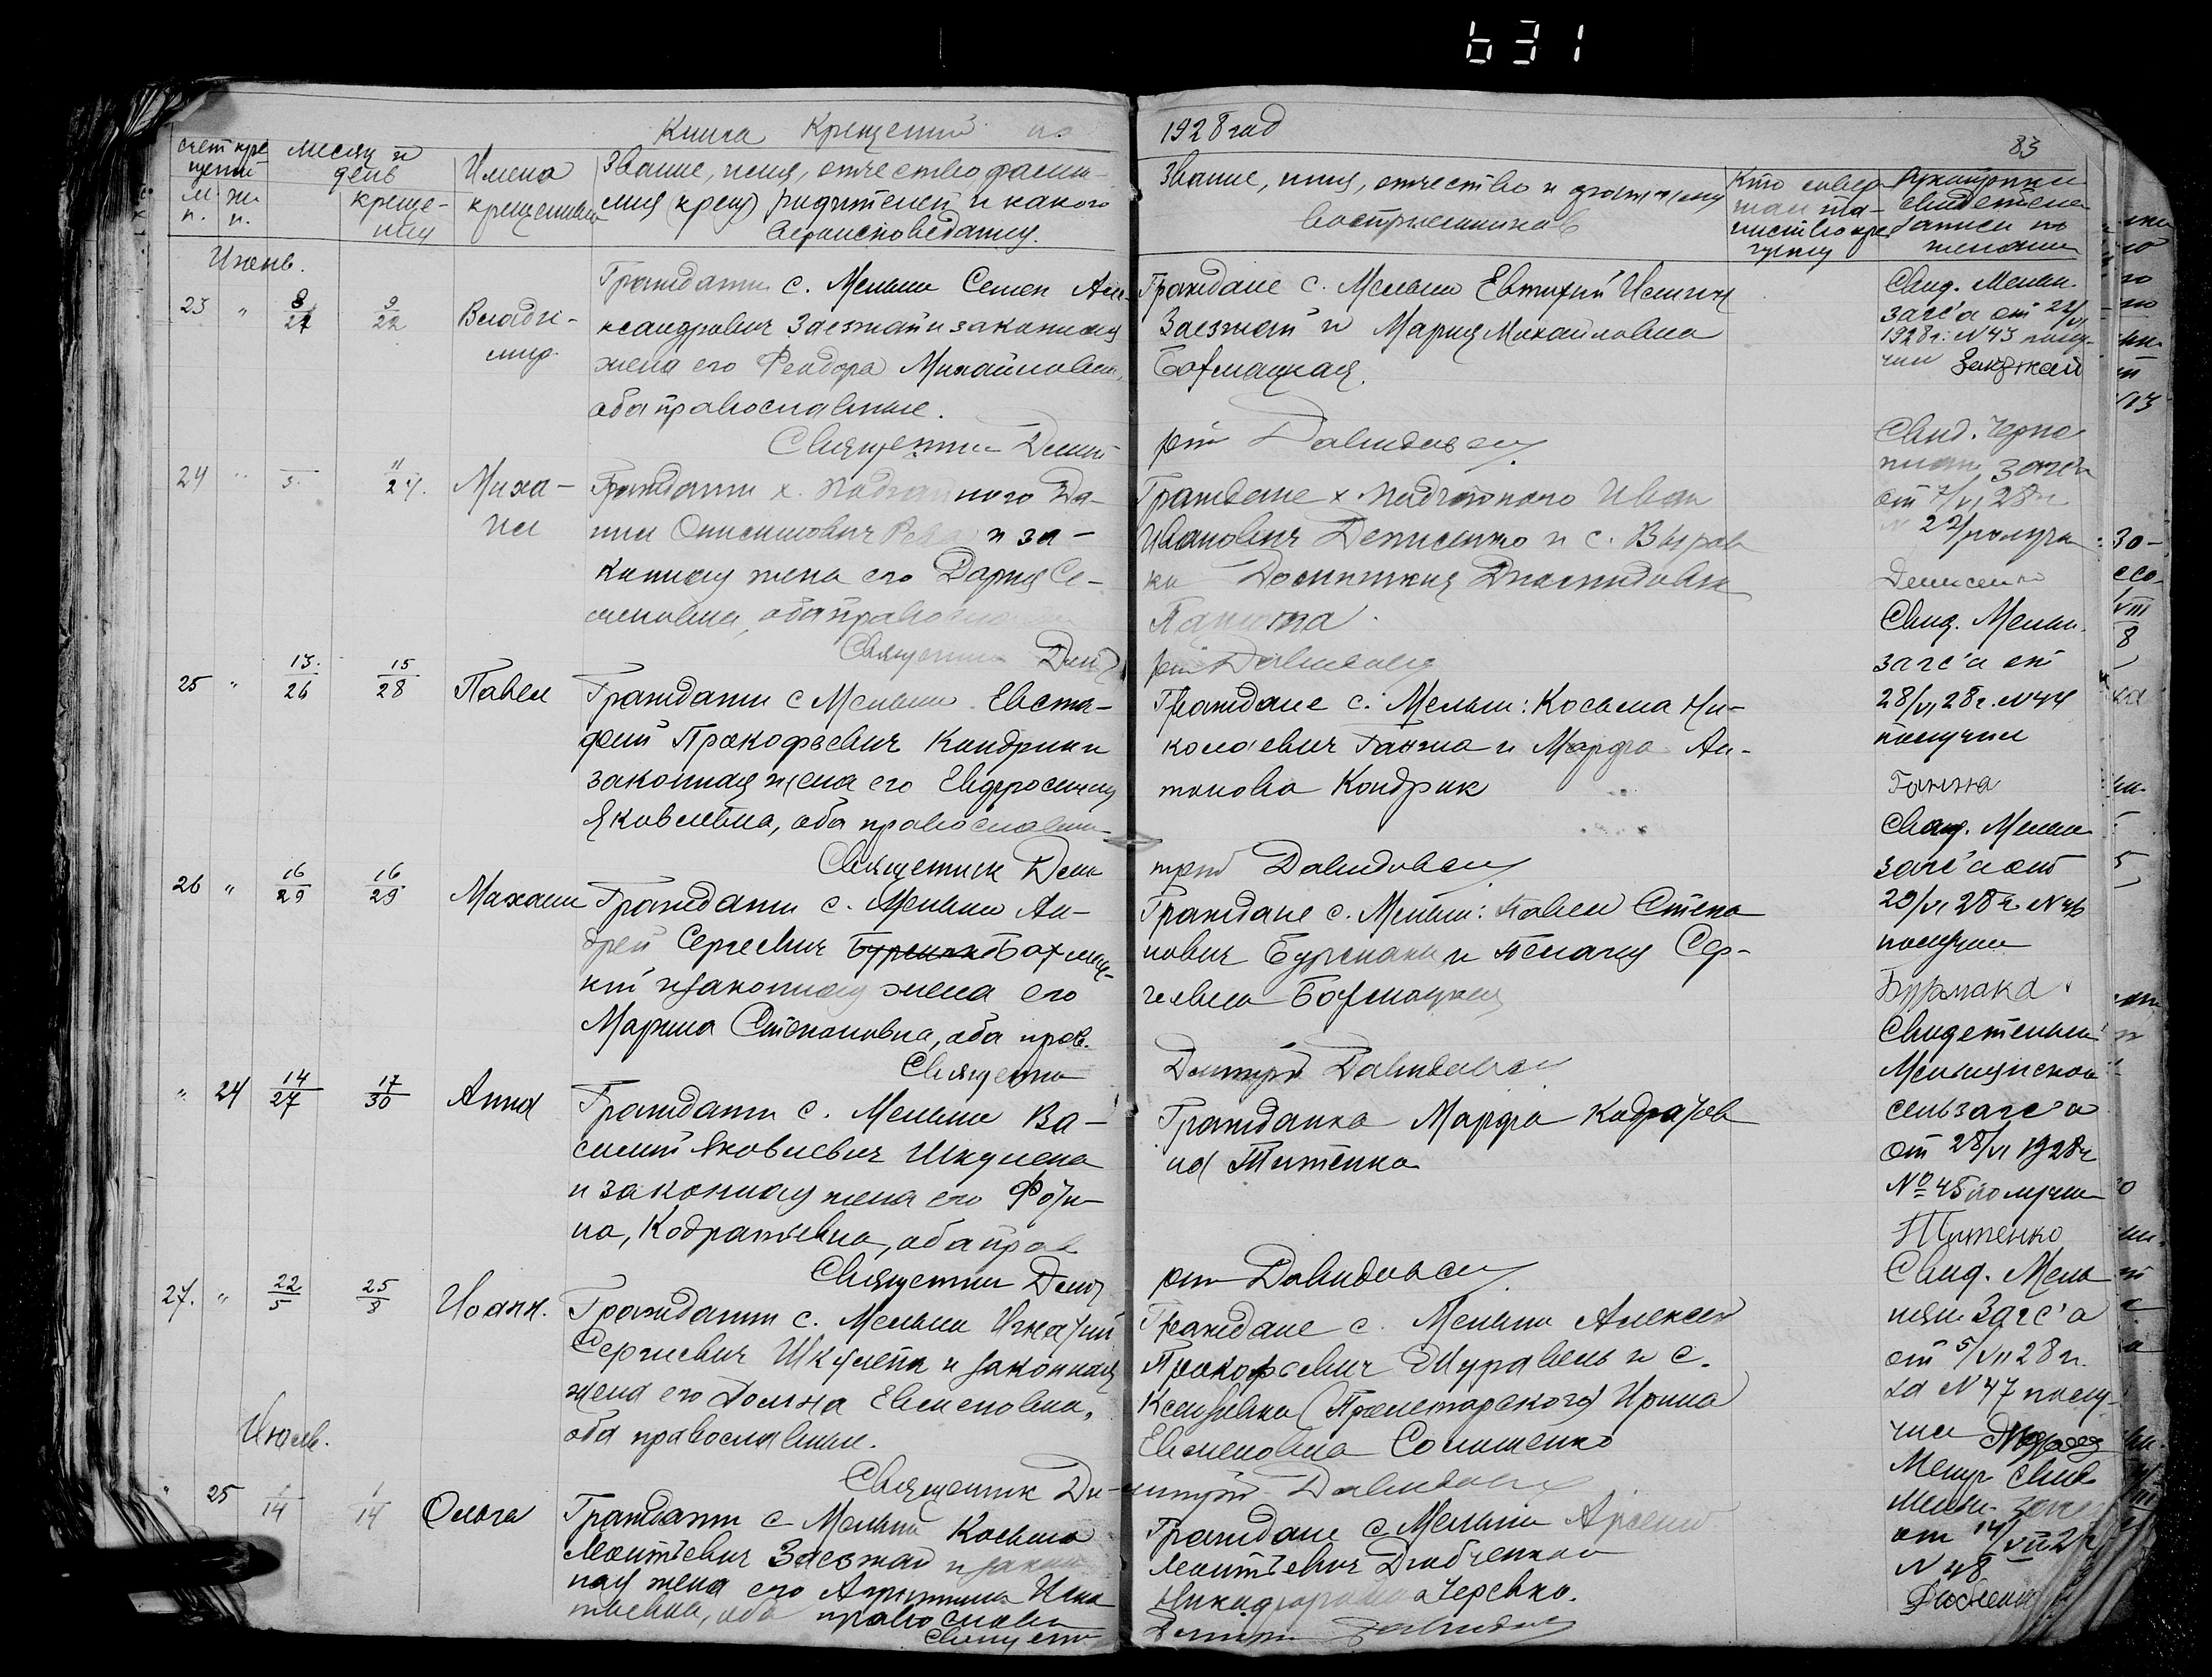 631
Книга Крещений на
1928 год
83
счет кре
щений
м. ж.
п. п.
месяц и
день
креще-
ния
Имена
крещенных
Звание, имя, отчество фами-
лия (крещ) родителей и какого
вероисповедания.
Звание, имя, отчество и фамилия
восприемников
Кто совер
шал та-
инство кре
щения
Рукоприкл
свидетелей
записи по
желанию
Июнь.
23 " 8/21 9/22 Влади-
мир
Гражданин с. Мельни Семен Але
ксандрович Заезжай и законная
жена его Феодора Михайловна,
оба православные.
Священник Дми
Граждане с. Мельни Евтихий
Заезжай и Мария Михайловна
Бахмацкая.
трий Давидовский
Свид. Мельн.
загс'а от 22/VI
1928 г. N 43 полу-
чил Заезжай
24 " 5 11/24. Миха-
ил
Гражданин х. Да-
нил Онисимович и за-
конная жена его Дария Се-
меновна, оба православные
Священник Дмит
Граждане х. Иван
Иванович Денисенко и с. Вырев
ки Диомидовна
рий Давидовский
Свид. Черно
загс'а
от 7/VI 28 г.
N 22 получил
Денисенко
25 " 13/26 15/28 Павел
Гражданин с Мельни Евста-
фий Прокофьевич Кондрик и
законная жена его Евфросиния
Яковлевна, оба православн
Священник Дми
Граждане с. Мельни: Косьма Ни-
колаевич Ганжа и Марфа Ан-
тонова Кондрик
трий Давидовский
Свид. Мельн.
загс'а от
28/VI 28 г. N 44
получил
Ганжа
26 " 16/29 16/29 Михаил
Гражданин с. Мельни Ан-
дрей Сергеевич Бурмака Бахмац-
кий и законная жена его
Марина Степановна, оба прав.
Священник
Граждане с. Мельни: Павел Степа
нович Бурмака и Пелагия Сер-
геевна Бахмацкая
Дмитрий Давидовский
Свид. Мельн
загс'а от
29/VI 28 г. N 46
получил
Бурмака
" 24 14/27 17/30 Анна
Гражданин с. Мельни Ва-
силий Яковлевич Шкулепа
и законная жена его Фоти-
на, Кодратьевна, оба прав
Священник Дмит
Гражданка Марфа Кодратов
на Титенко
рий Давидовский
Свидетельств
Мельнянского
сельзагс'а
от 28/VI 1928 г.
№ 45 получил
Титенко
27. " 22/5 25/8 Иоанн.
Гражданин с. Мельни Игнатий
Сергиевич Шкулепа и законная
жена его Домна Евменовна,
оба православные.
Священник Ди-
Граждане с. Мельни Алексей
Прокофьевич Журавель и с.
Ксензовки (Пролетарского) Ирина
Евменовна Солошенко
митрий Давидовский
Свид. Мель
нян Загс'а
от 5/VII 28 г.
за N 47 полу-
чил
Июль.
" 25 1/14 1/14 Ольга
Гражданин с Мельни Косьма
Леонтьевич Заезжай и закон
ная жена его Игна
тьевна, оба православн
Священник
Граждане с Мельни Арсений
Леонтьевич Дзюбченко и
Никифоровна Черевко.
Дмитрий Давидовский
Свид
Мельн. загс
от 14/VII 28
N 48